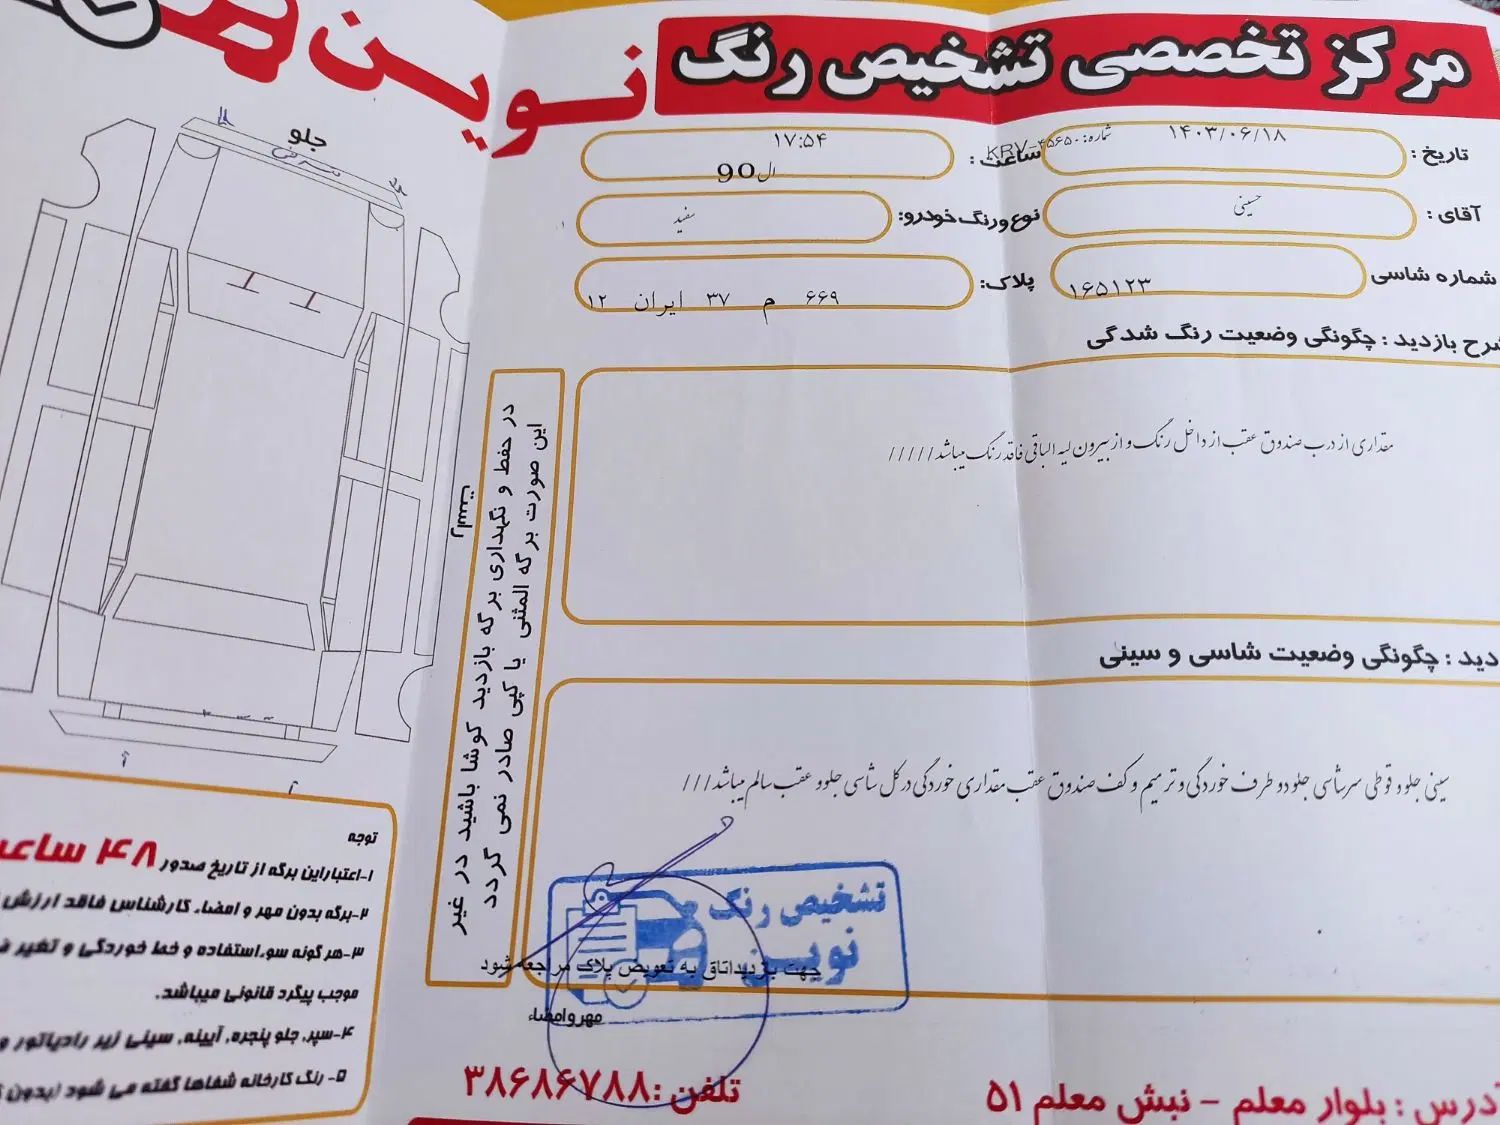 مرکز تخصصی تشخیص رنگ
نوین
تاریخ :
۱۴۰۳/۰۶/۱۸
شماره: KRV-۴۵۶۵۰
ساعت :
۱۷:۵۴
آقای :
حسینی
نوع ورنگ خودرو:
ال90
سفید
شماره شاسی
۱۶۵۱۲۳
پلاک:
۶۶۹ م ۳۷ ایران ۱۲
شرح بازدید : چگونگی وضعیت رنگ شدگی
مقداری از درب صندوق عقب از داخل رنگ و از بیرون لیسه الباقی فاقد رنگ میباشد/////
دید : چگونگی وضعیت شاسی و سینی
سینی جلو و قوطی سرشاسی جلو دو طرف خوردگی و ترمیم و کف صندوق عقب مقداری خوردگی در کل شاسی جلو و عقب سالم میباشد///
در حفظ و نگهداری برگه بازدید کوشا باشید در غیر
این صورت برگه المثنی یا کپی صادر نمی گردد
جلو
راست
تشخیص رنگ
نوین
جهت بازدیداتاق به تعویض پلاک مراجعه شود
مهروامضاء
توجه
۱-اعتباراین برگه از تاریخ صدور ۴۸ ساعت
۲-برگه بدون مهر و امضاء کارشناس فاقد ارزش
۳-هر گونه سوءاستفاده و خط خوردگی و تغیر
موجب پیگرد قانونی میباشد.
۴-سپر، جلو پنجره، آیینه، سینی زیر رادیاتور و
۵- رنگ کارخانه شفاها گفته می شود (بدون
تلفن :۳۸۶۸۶۷۸۸
آدرس : بلوار معلم - نبش معلم ۵۱